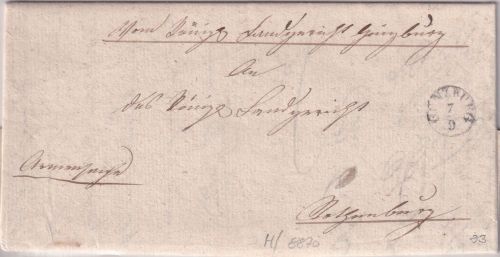 Vom Königl Landgericht Günzburg
An
das Königl Landgericht
GÜNZBURG
7
9
Armensache
Rothenburg
H/ 8870
93